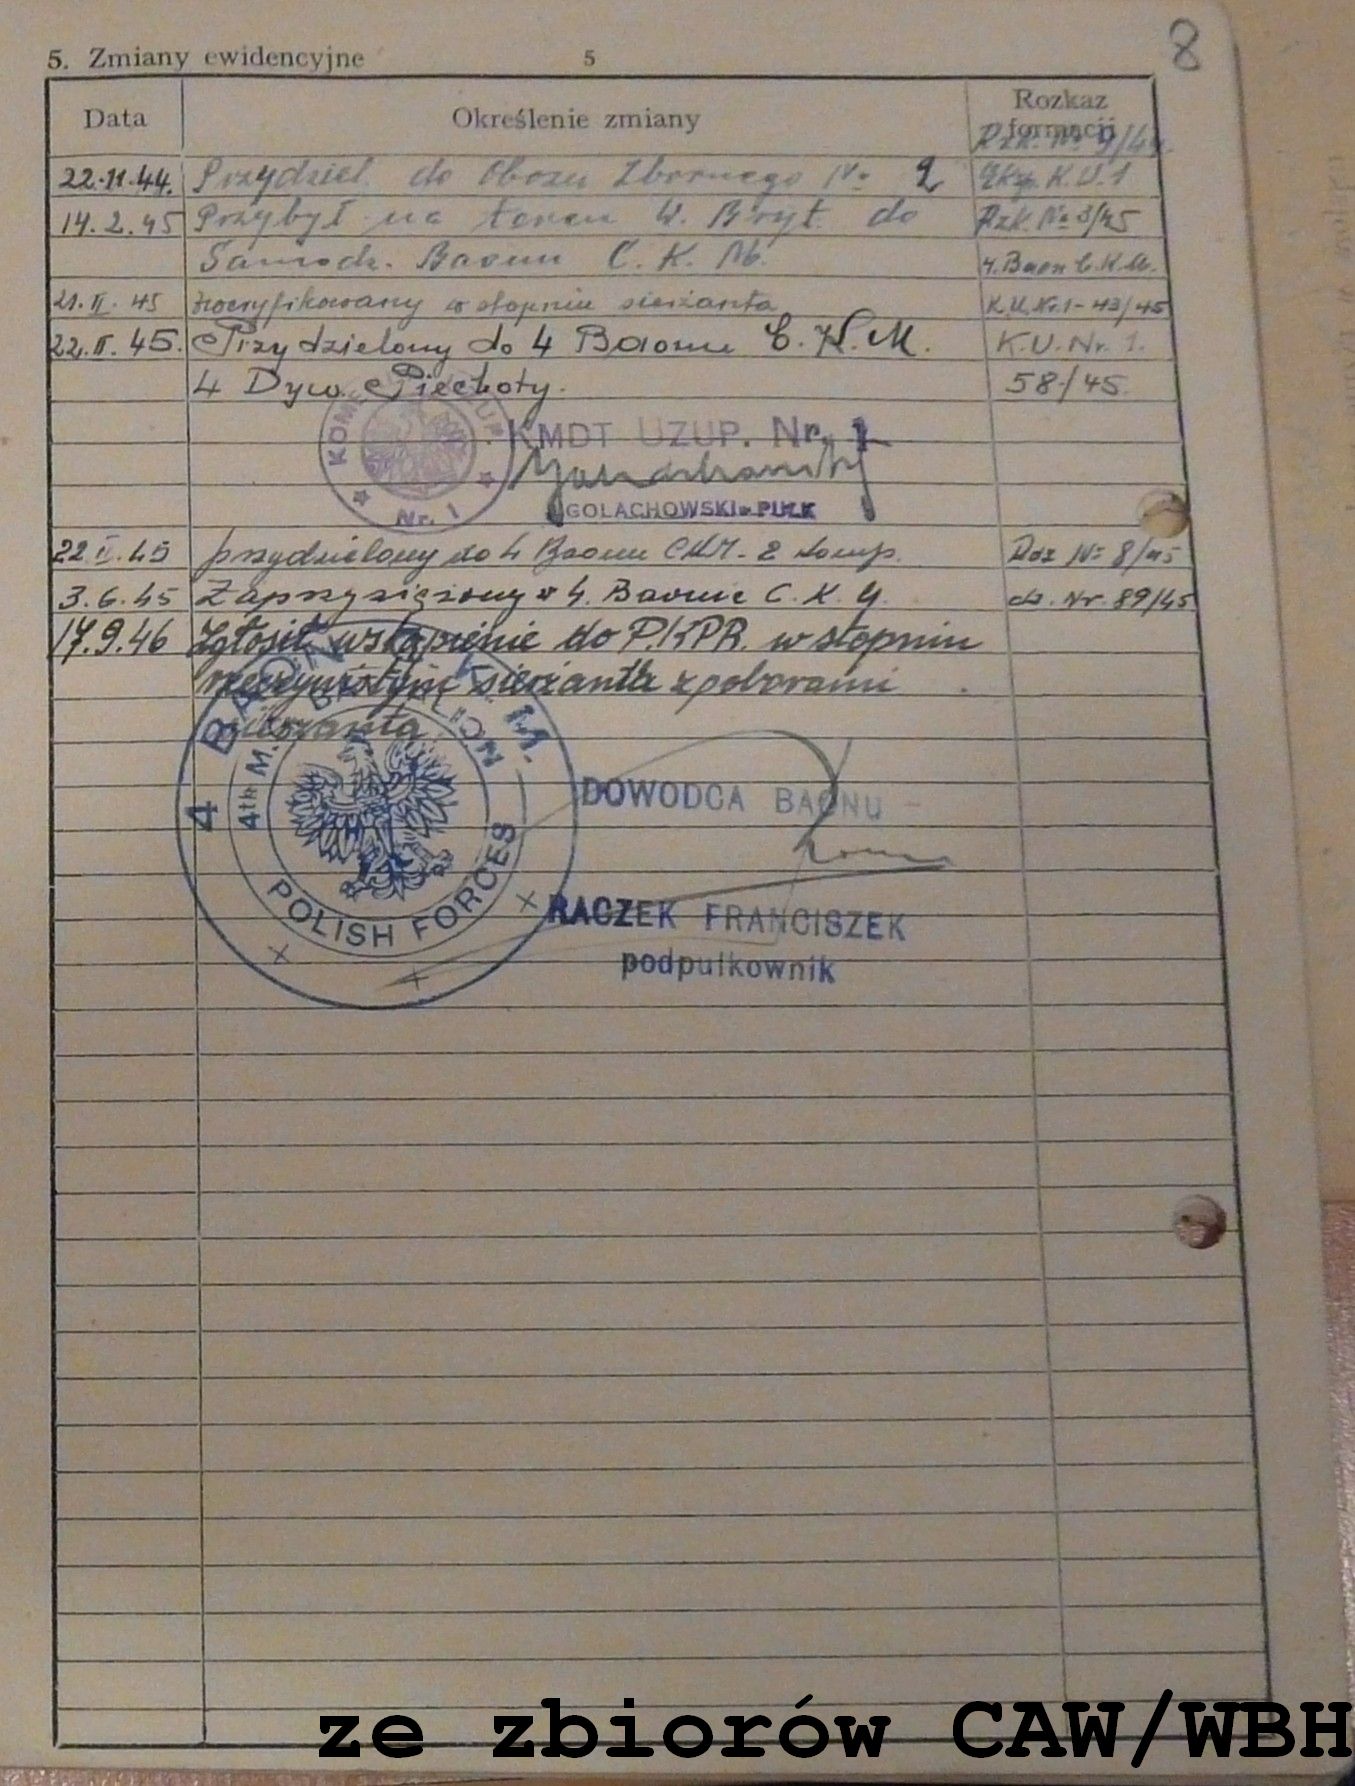 8
5. Zmiany ewidencyjne 5
Data Określenie zmiany Rozkaz formacji
Rzk. Nr 9/44
22.11.44. Przydziel. do Obozu Zbornego Nr 2 K.U.1
14.2.45 Przybył na teren W. Bryt. do Rzk. Nr 3/45
Samodz. Baonu C. K. M. 4. Baon C.K.M.
21.II.45 zweryfikowany w stopniu sierżanta K.U.Nr.1-43/45
22.II.45. Przydzielony do 4 Baonu C.K.M. K.U.Nr.1.
4 Dyw. Piechoty. 58/45.
KMDT UZUP. Nr. 1
GOLACHOWSKI PUŁK
Nr. 1
22.II.45 przydzielony do 4 Baonu CKM - 2 komp. Roz Nr 8/45
3.6.45 Zaprzysiężony w 4. Baonie C.K.M. Nr. 89/45
17.9.46 Zgłosił wstąpienie do P.K.P.R. w stopniu
rzeczywistym sierżanta z poborami
sierżanta
4 BAON C.K.M.
4th M. BATTALION
POLISH FORCES
DOWODCA BAONU
RACZEK FRANCISZEK
podpułkownik
ze zbiorów CAW/WBH